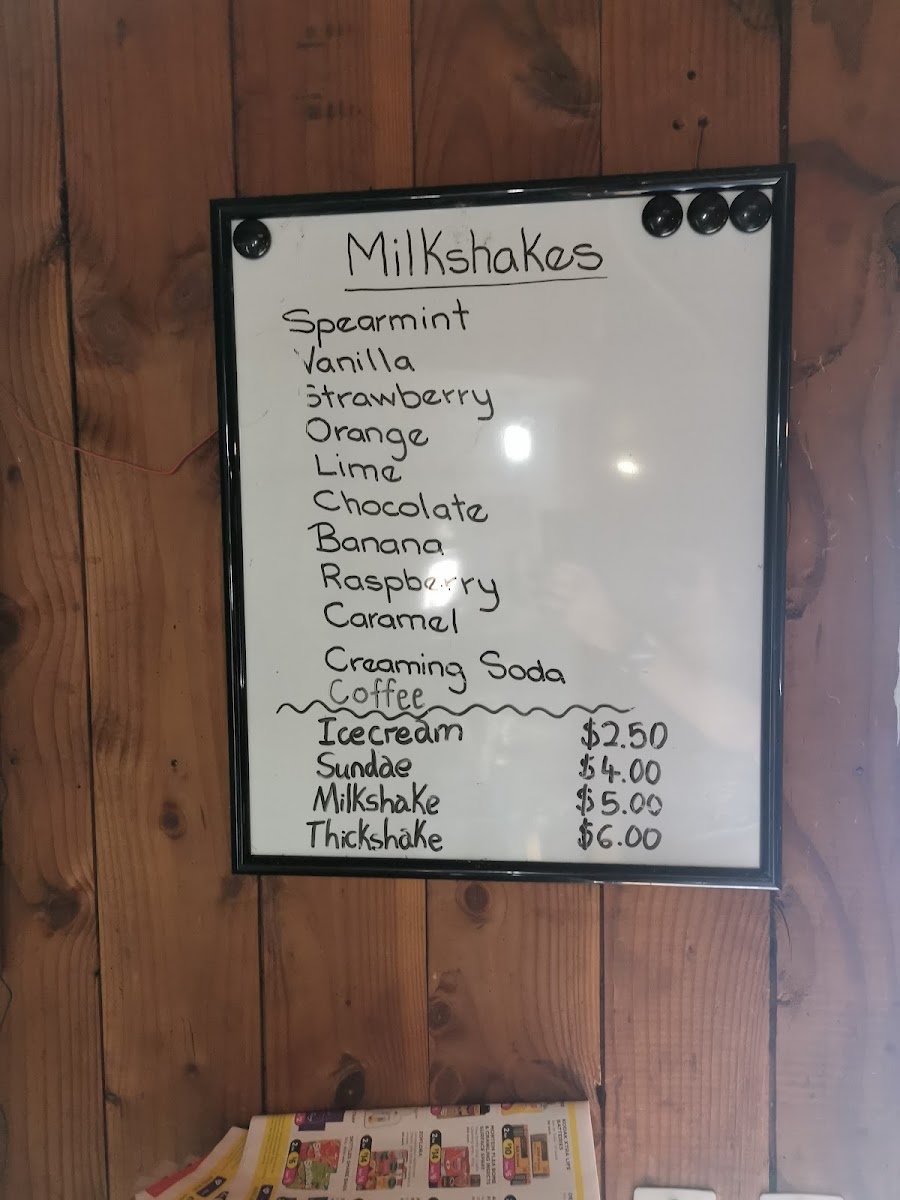 Milkshakes
Spearmint
Vanilla
Strawberry
Orange
Lime
Chocolate
Banana
Raspberry
Caramel
Creaming Soda
Coffee
Icecream $2.50
Sundae $4.00
Milkshake $5.00
Thickshake $6.00